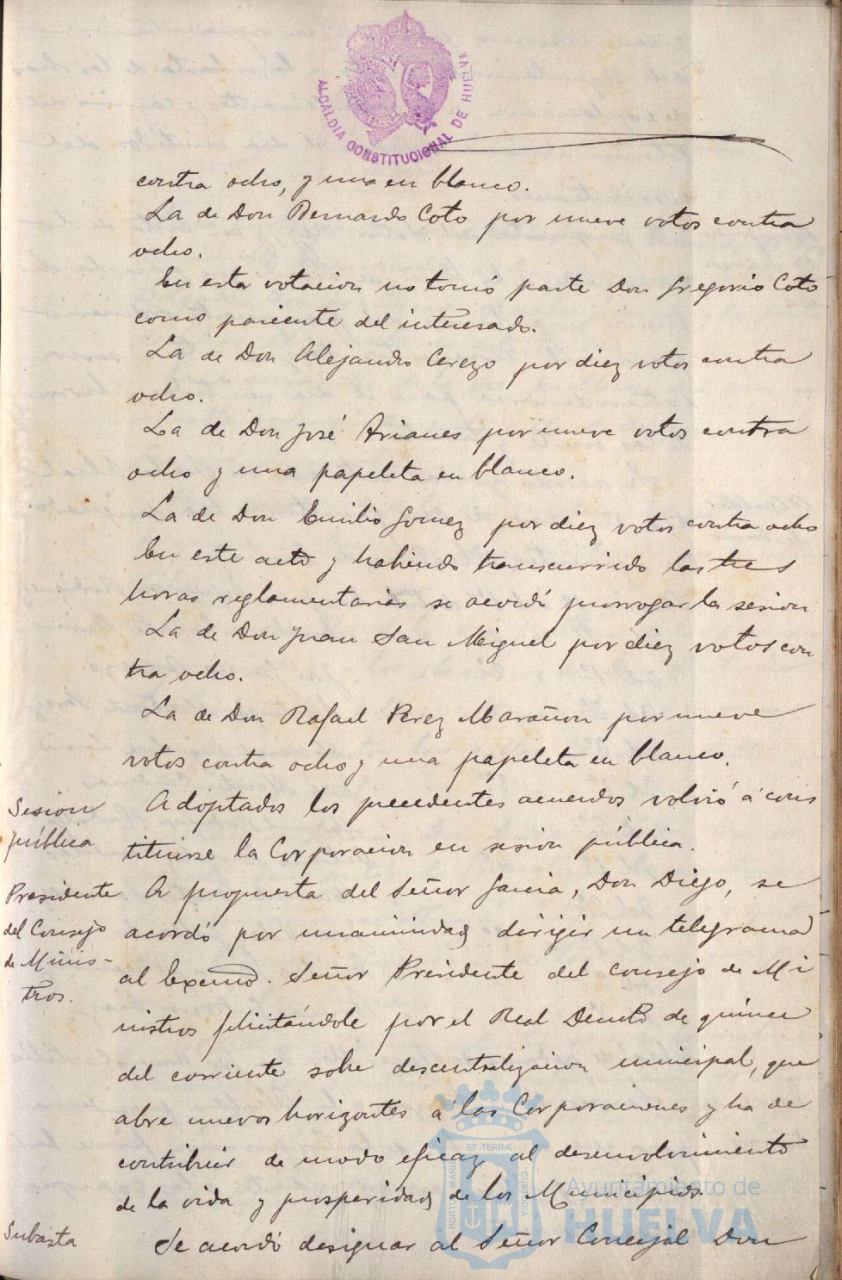 ALCALDÍA CONSTITUCIONAL DE HUELVA
contra ocho, y una en blanco.
La de Don Bernardo Coto por nueve votos contra
ocho.
En esta votacion no tomó parte Don Gregorio Coto
como pariente del interesado.
La de Don Alejandro Cerezo por diez votos contra
ocho.
La de Don José Arianes por nueve votos contra
ocho y una papeleta en blanco.
La de Don Emilio Gomez por diez votos contra ocho
En este acto y habiendo transcurrido las tres
horas reglamentarias se acordó prorrogar la sesion
La de Don Juan San Miguel por diez votos con
tra ocho.
La de Don Rafael Perez Marañon por nueve
votos contra ocho y una papeleta en blanco.
Sesion
pública
Adoptados los precedentes acuerdos volvió á cons
tituirse la Corporacion en sesion pública.
Presidente
del Consejo
de Minis-
tros.
A propuesta del Señor Garcia, Don Diego, se
acordó por unanimidad dirigir un telegrama
al Excmo. Señor Presidente del Consejo de Mi
nistros felicitándole por el Real Decreto de quince
del corriente sobre descentralizacion municipal, que
abre nuevos horizontes á las Corporaciones y ha de
contribuir de modo eficaz al desenvolvimiento
de la vida y prosperidad de los Municipios.
Subasta
Se acordó designar al Señor Concejal Don
ET TERRÆ
PORTUS MARIS
CUSTODIA
Ayuntamiento de
HUELVA